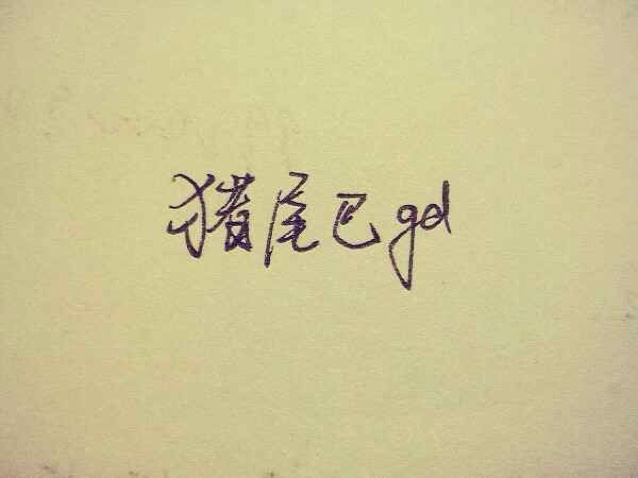 猪尾巴gd